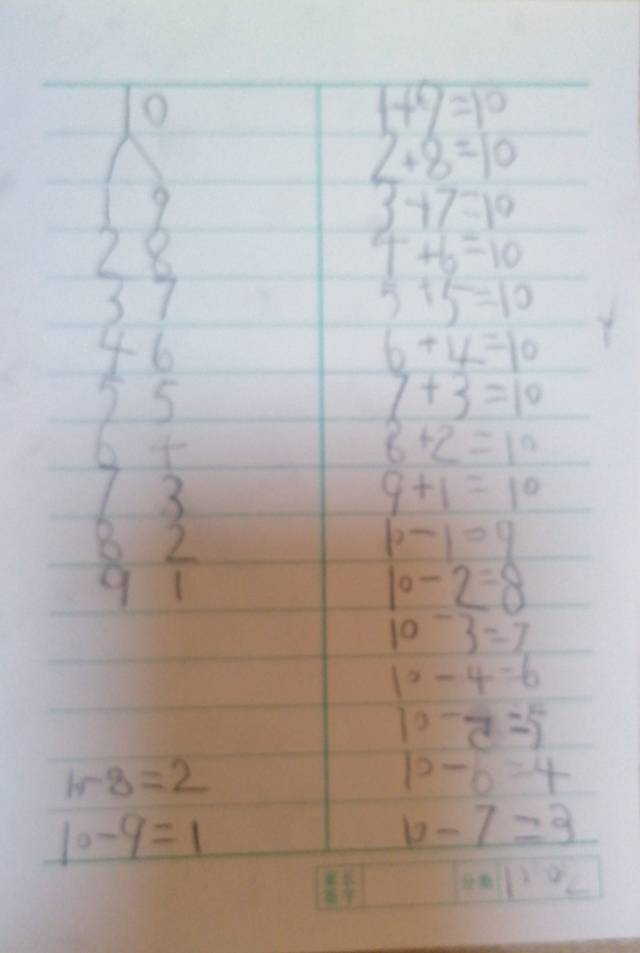 10
1 9
2 8
3 7
4 6
5 5
6 4
7 3
8 2
9 1
10-8=2
10-9=1
1+9=10
2+8=10
3+7=10
4+6=10
5+5=10
6+4=10
7+3=10
8+2=10
9+1=10
10-1=9
10-2=8
10-3=7
10-4=6
10-5=5
10-6=4
10-7=3
家长
签字
分数